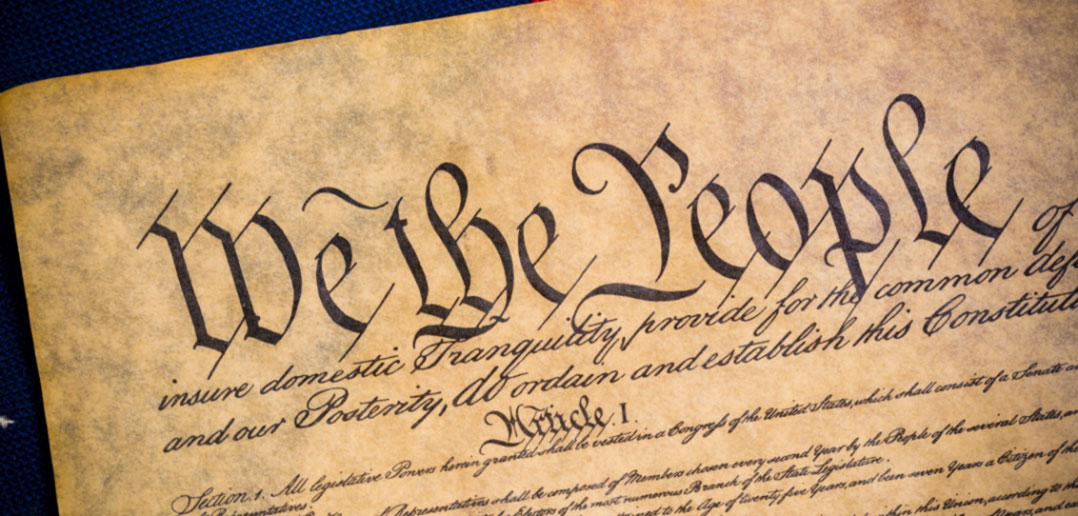 We the People of
insure domestic Tranquility, provide for the common def
and our Posterity, do ordain and establish this Constituti
Article. I.
Section. 1. All legislative Powers herein granted shall be vested in a Congress of the United States, which shall consist of a Senate a
Representatives.
Representatives shall be composed of Members chosen every second Year by the People of the several States, an
of the most numerous Branch of the State Legislature.
to the Age of twenty five Years, and been seven Years a Citizen of the
within this Union, according to th